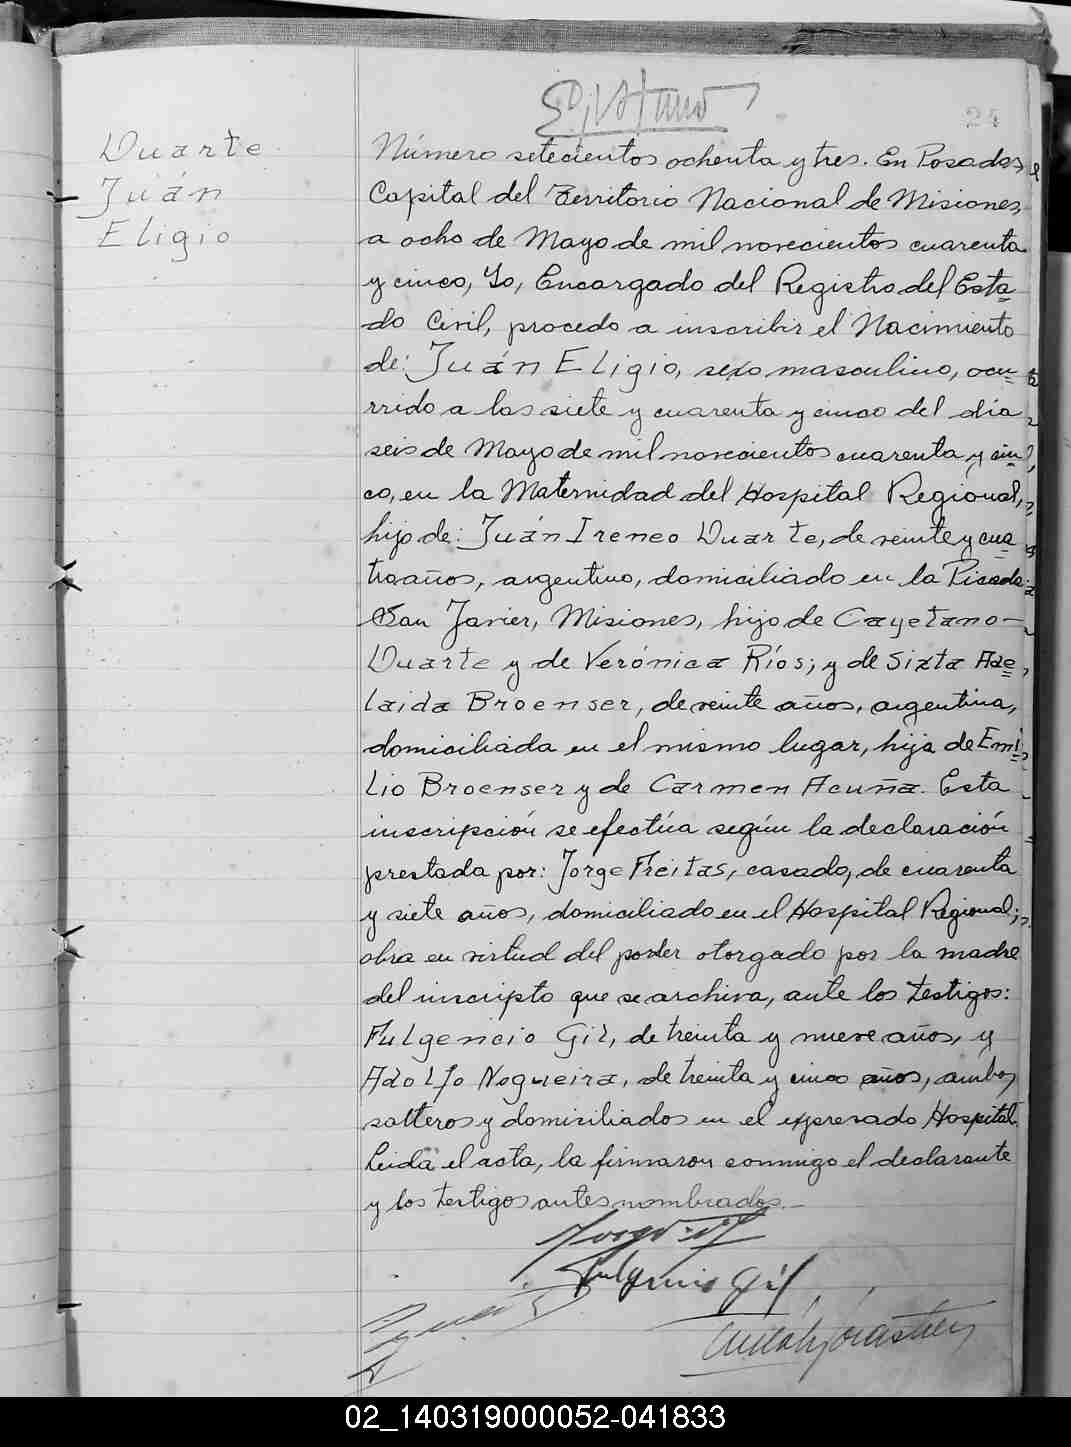 24
Duarte
Juán
Eligio
Número setecientos ochenta y tres. En Posadas,
Capital del Territorio Nacional de Misiones,
a ocho de Mayo de mil novecientos cuarenta
y cinco, Yo, Encargado del Registro del Esta=
do Civil, procedo a inscribir el Nacimiento
de: Juán Eligio, sexo masculino, ocu=
rrido a las siete y cuarenta y cinco del día
seis de Mayo de mil novecientos cuarenta y cin=
co, en la Maternidad del Hospital Regional,
hijo de: Juán Ireneo Duarte, de veinte y cua=
tro años, argentino, domiciliado en la Picada
San Javier, Misiones, hijo de Cayetano—
Duarte y de Verónica Ríos; y de Sixta Ade=
laida Broenser, de veinte años, argentina,
domiciliada en el mismo lugar, hija de Emi=
lio Broenser y de Carmen Acuña. Esta
inscripción se efectúa según la declaración
prestada por: Jorge Freitas, casado, de cuarenta
y siete años, domiciliado en el Hospital Regional;
obra en virtud del poder otorgado por la madre
del inscripto que se archiva, ante los testigos:
Fulgencio Gil, de treinta y nueve años, y
Adolfo Nogueira, de treinta y cinco años, ambos
solteros y domiciliados en el expresado Hospital.
Leida el acta, la firmaron conmigo el declarante
y los testigos antes nombrados.—
Fulgencio Gil
02_140319000052-041833